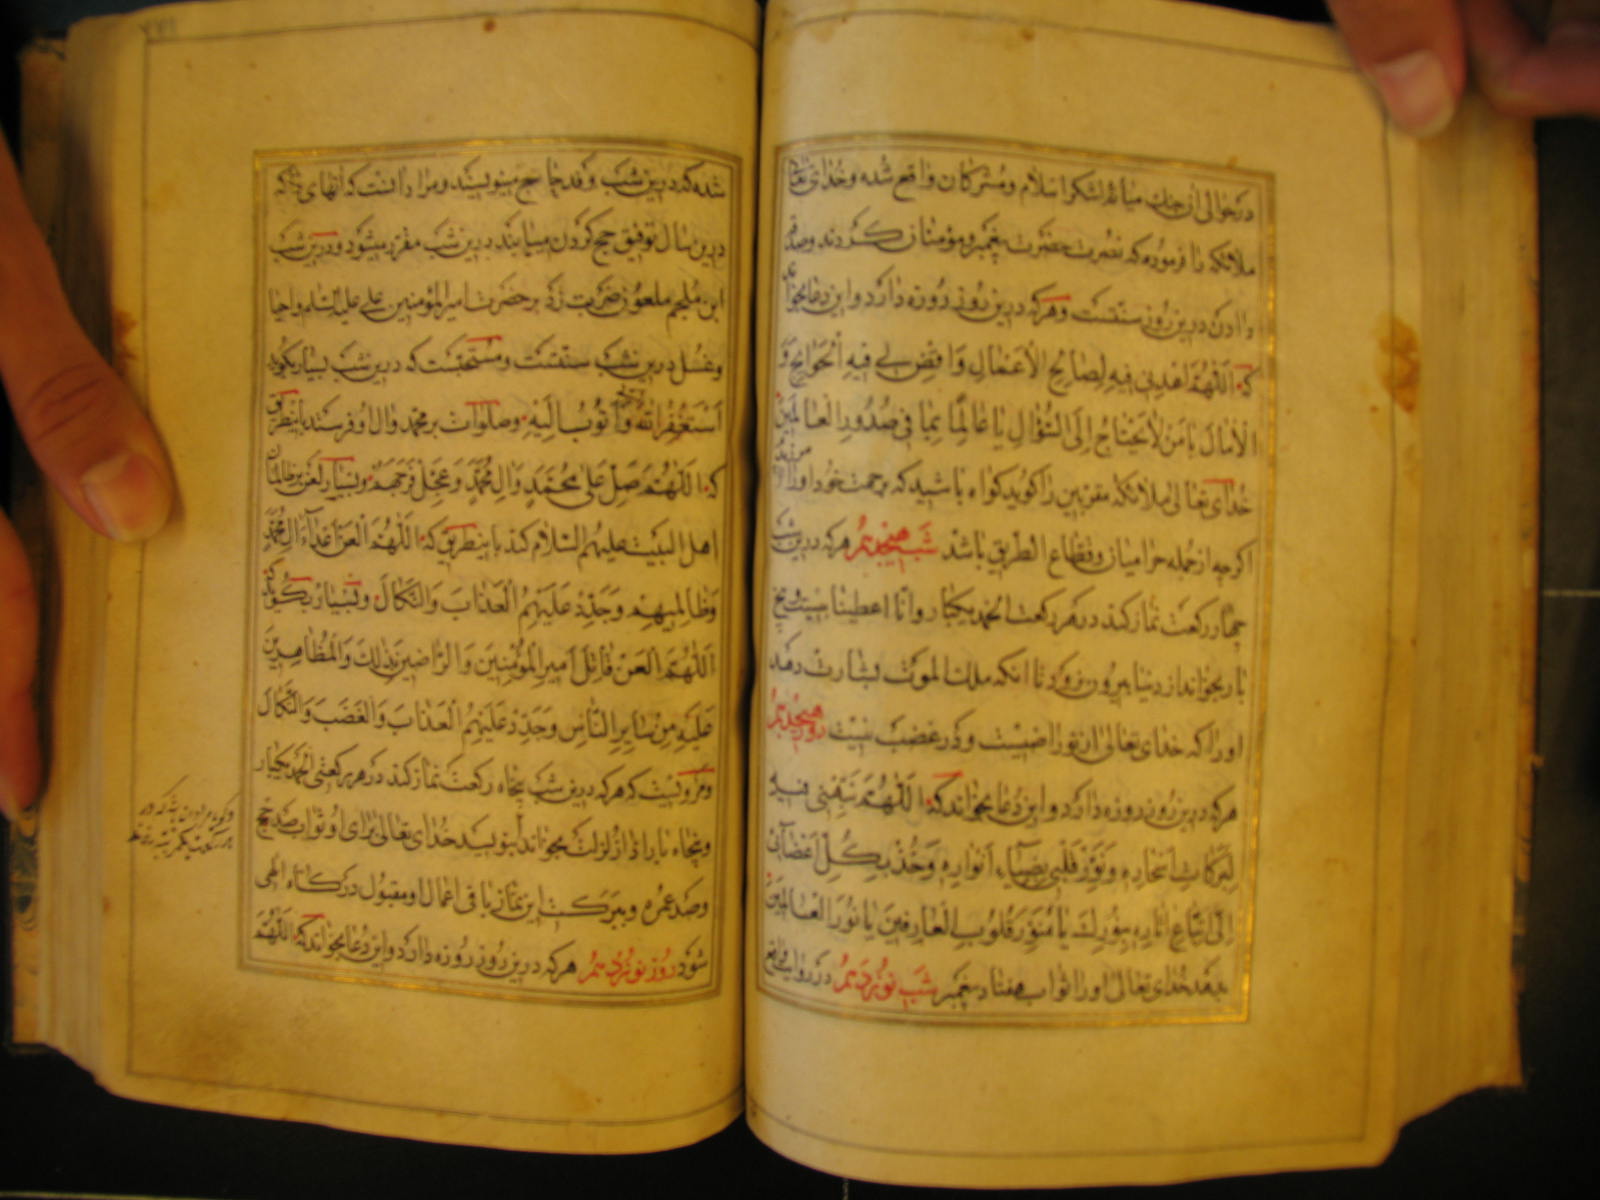 در حوالی آن جنك میانهٔ لشکر اسلام ومشرکان واقع شده وخدای تعالی
ملائکه را فرموده که نصرت حضرت پیغمبر ومؤمنان کردند وصدقه
دادن درین روز سنتست وهرکه درین روز روزه دارد واین دعا بخواند
که اللهم اهدنی فیه لصالح الاعمال واقض لی فیه الحوائج و
الامال یا من لا یحتاج الی السؤال یا عالما بما فی صدور العالمین
خدای تعالی ملائکه مقربین را کوید کواه باشید که برحمت خود او را
اکرچه از جمله حرامیان وقطاع الطریق باشد شب هیجدهم هرکه درین شب
چهار رکعت نماز کند در هر رکعت الحمد یکبار وانا اعطینا بیست وپنج
بار بخواند از دنیا بیرون نرود تا انکه ملك الموت بشارت دهد
او را که خدای تعالی از تو راضیست ودر غضب نیست روز هیجدهم
هرکه درین روز روزه دارد واین دعا بخواند که اللهم نبهنی فیه
لبرکات اسحاره ونور قلبی بضیاء انواره وخذ بکل اعضائی
الی اتباع اثاره بنورك یا منور قلوب العارفین یا نور العالمین
بدهد خدای تعالی او را ثواب هفتاد پیغمبر شب نوزدهم در روایت واقع
شده که درین شب وفد حاج می‌نویسند ومراد انست که آنهای که
درین سال توفیق حج کردن می‌یابند درین شب مقرر میشود ودرین شب
ابن ملجم ملعون ضربت زد بر حضرت امیر المؤمنین علی علیه السلام واحیا
وغسل درین شب سنتست ومستحبست که درین شب بسیار بکوید
استغفر الله واتوب الیه وصلوات بر محمد وال او فرستد باینطریق
که اللهم صل علی محمد وال محمد وعجل فرجهم وبسیار لعن بر ظالمان
اهل البیت علیهم السلام کند باینطریق که اللهم العن اعداء ال محمد
وظالمیهم وجدد علیهم العذاب والنکال وبسیار بکوید
اللهم العن قاتل امیر المؤمنین والراضین بذلك والمظاهرین
علیه من سایر الناس وجدد علیهم العذاب والغضب والنکال
ومرویست که هرکه درین شب پنجاه رکعت نماز کند در هر رکعتی الحمد یکبار
وپنجاه بار اذا زلزلت بخواند بنویسد خدای تعالی برای او ثواب صد حج
وصد عمره وببرکت این نماز باقی اعمال او مقبول درکاه الهی
شود روز نوزدهم هرکه درین روز روزه دارد واین دعا بخواند که اللهم